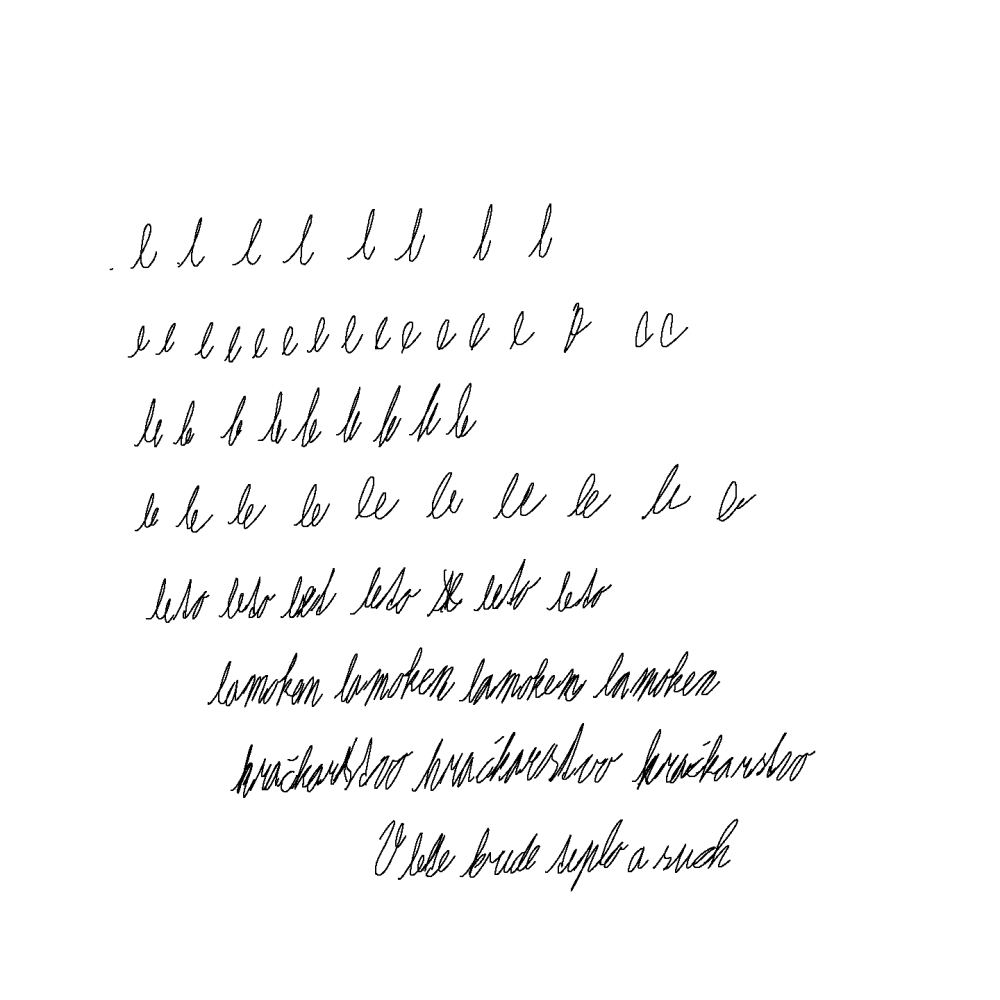 l l l l l l l l
e e e e e e e e e e e e e e c c
le le le le le le le le le
le le le le le le le le le e
leto leto leto leto leto
lamoken lamoken lamoken lamoken
hračkarstvo hračkarstvo hračkarstvo
V lete bude teplo a such